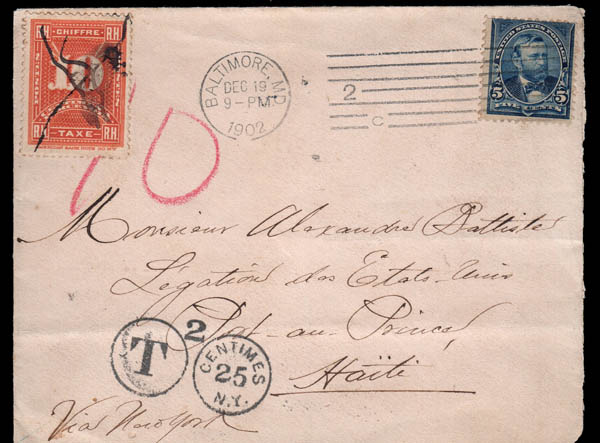 CHIFFRE
RH RH
.10
RH RH
TAXE
BALTIMORE, MD.
DEC 19
9-PM
1902
2
C
UNITED STATES POSTAGE
5 5
FIVE CENTS
10
Monsieur Alexandre Battiste
Légation des États-Unis
Port-au-Prince,
Haïti
T
2
CENTIMES
25
N.Y.
Via New York